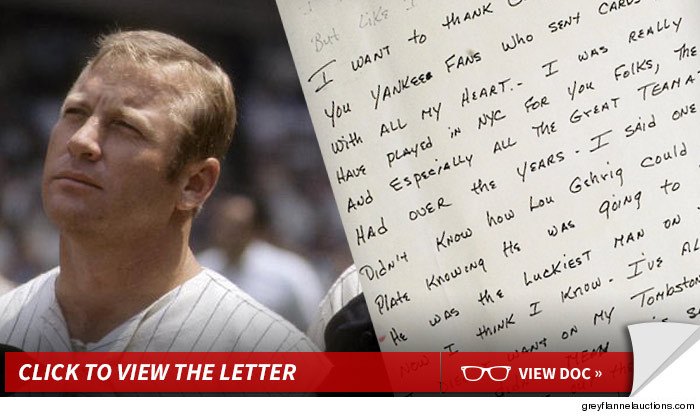 "But Like I
I WANT to thANK
you YANKEES FANS who sENt CARDS
with ALL my HEART.- I was REALLY
HAVE playED iN NYC FOR you FOLKS, the
AND EspEciAlly ALL The GREAT TEAMAT
HAD OVER the YEARS - I sAID ONE
DiDN't KNOW how LOU GEhRig COULD
PlAtE KNOWiNg HE WAS gOiNg tO
HE WAS thE LUCKIEST MAN ON
NOW I thiNK I KNOW - I'VE AL
WANT ON MY TOMBSTON
MEAN
CLICK TO VIEW THE LETTER
VIEW DOC »
greyflannelauctions.com